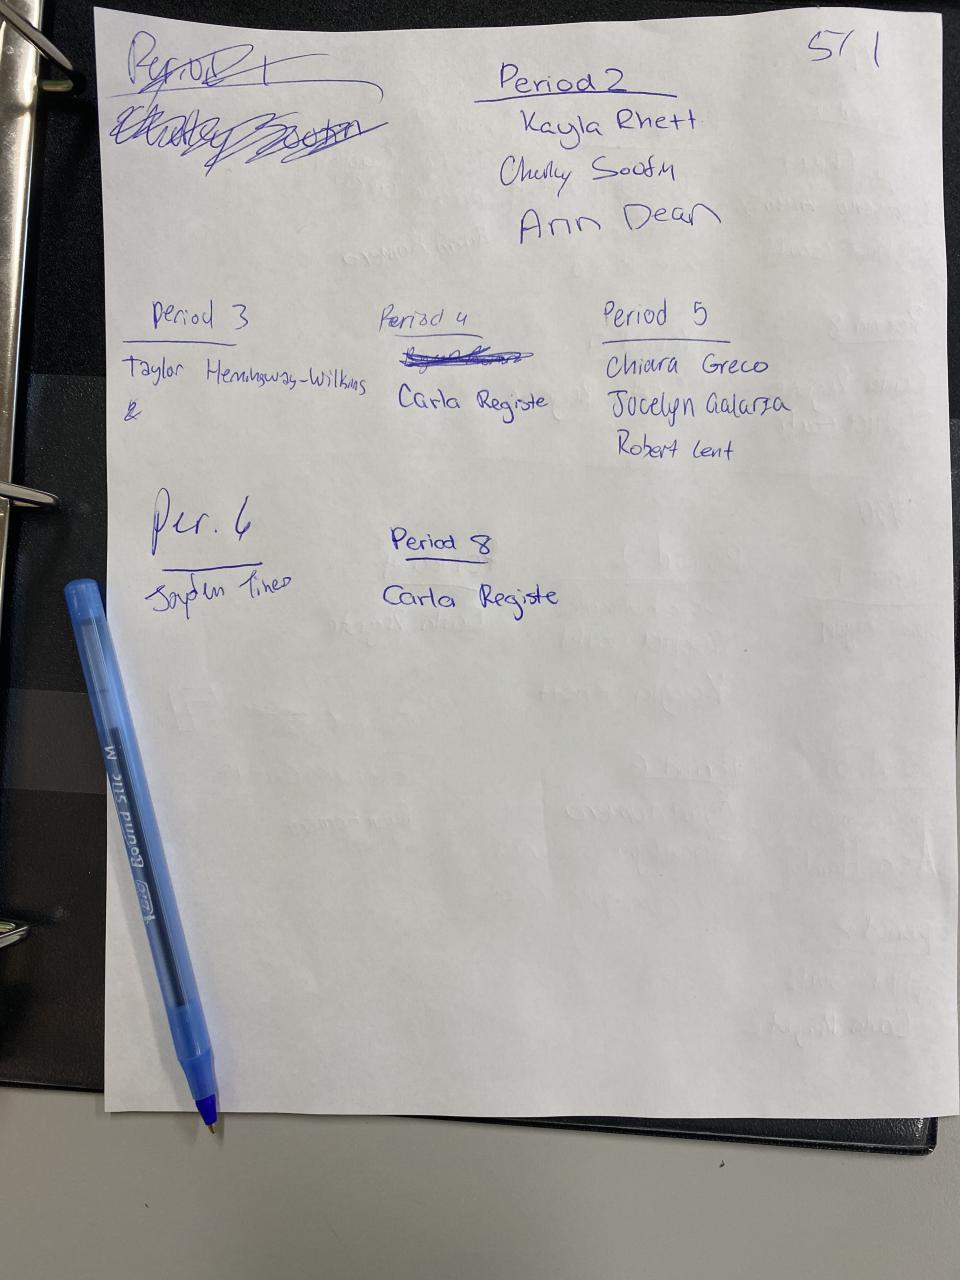 5/1
Period 1
Period 2
Kayla Rhett
Ann Dean
Period 3
Taylor Hemingway-Wilkins
&
Period 4
Carla Registe
Period 5
Chiara Greco
Jocelyn Galarza
Robert Lent
Per. 6
Jayden
Period 8
Carla Registe
BIC Round Stic M